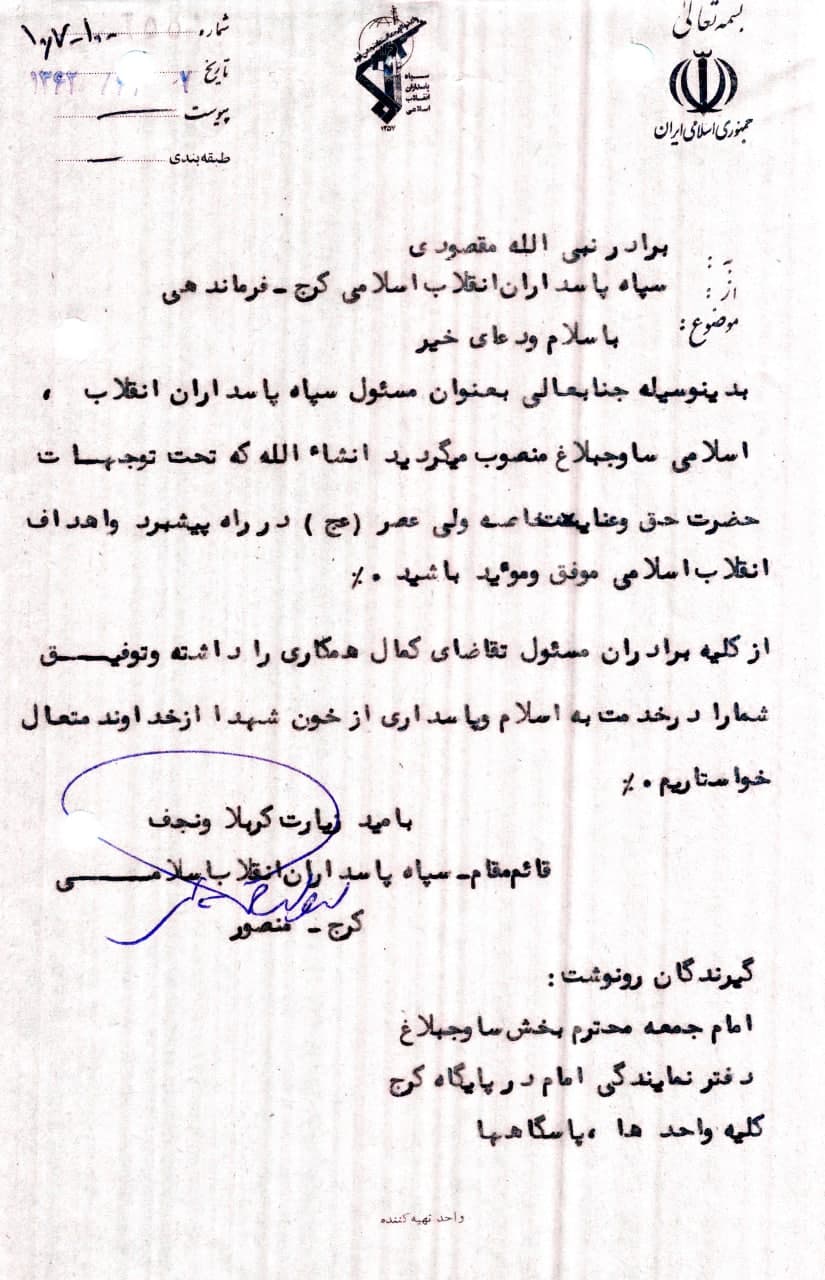 بسمه تعالی
جمهوری اسلامی ایران
سپاه
پاسداران
انقلاب
اسلامی
۱۳۵۷
شماره
تاریخ
پیوست —
طبقه‌بندی —
به : برادر نبی الله مقصودی
از : سپاه پاسداران انقلاب اسلامی کرج ـ فرماندهی
موضوع :
باسلام ودعای خیر
بدینوسیله جنابعالی بعنوان مسئول سپاه پاسداران انقلاب ،
اسلامی ساوجبلاغ منصوب میگردید انشاء الله که تحت توجهات
حضرت حق وعنایت خاصه ولی عصر (عج ) در راه پیشبرد واهداف
انقلاب اسلامی موفق وموئید باشید ۰٪
از کلیه برادران مسئول تقاضای کمال همکاری را داشته وتوفیـــق
شمارا درخدمت به اسلام وپاسداری از خون شهدا ازخداوند متعال
خواستاریم ۰٪
بامید زیارت کربلا ونجف
قائم مقام ـ سپاه پاسداران انقلاب اسلامـــــی
کرج ـ منصور
گیرندگان رونوشت :
امام جمعه محترم بخش ساوجبلاغ
دفتر نمایندگی امام در پایگاه کرج
کلیه واحد ها ، پاسگاهها
واحد تهیه کننده